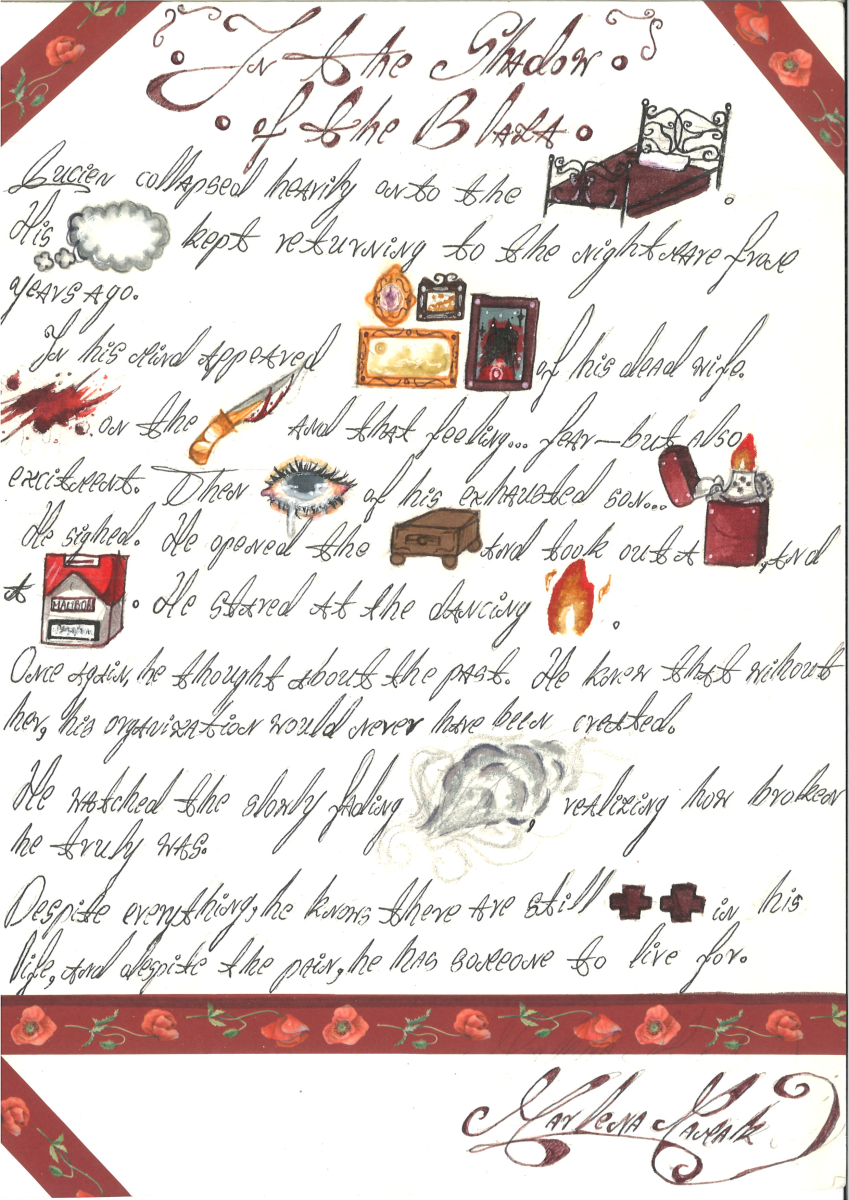 In the Shadow
of the Blaze
Lucien collapsed heavily onto the .
His kept returning to the nightmare from
years ago.
In his mind appeared of his dead wife.
on the and that feeling... fear—but also
excitment. Then of his exhausted son...
He sighed. He opened the and took out a , and
a . He stared at the dancing .
Once again, he thought about the past. He knew that without
her, his organization would never have been created.
He watched the slowly fading , realizing how broken
he truly was.
Despite everything, he knows there are still in his
life, and despite the pain, he has someone to live for.
Marlena